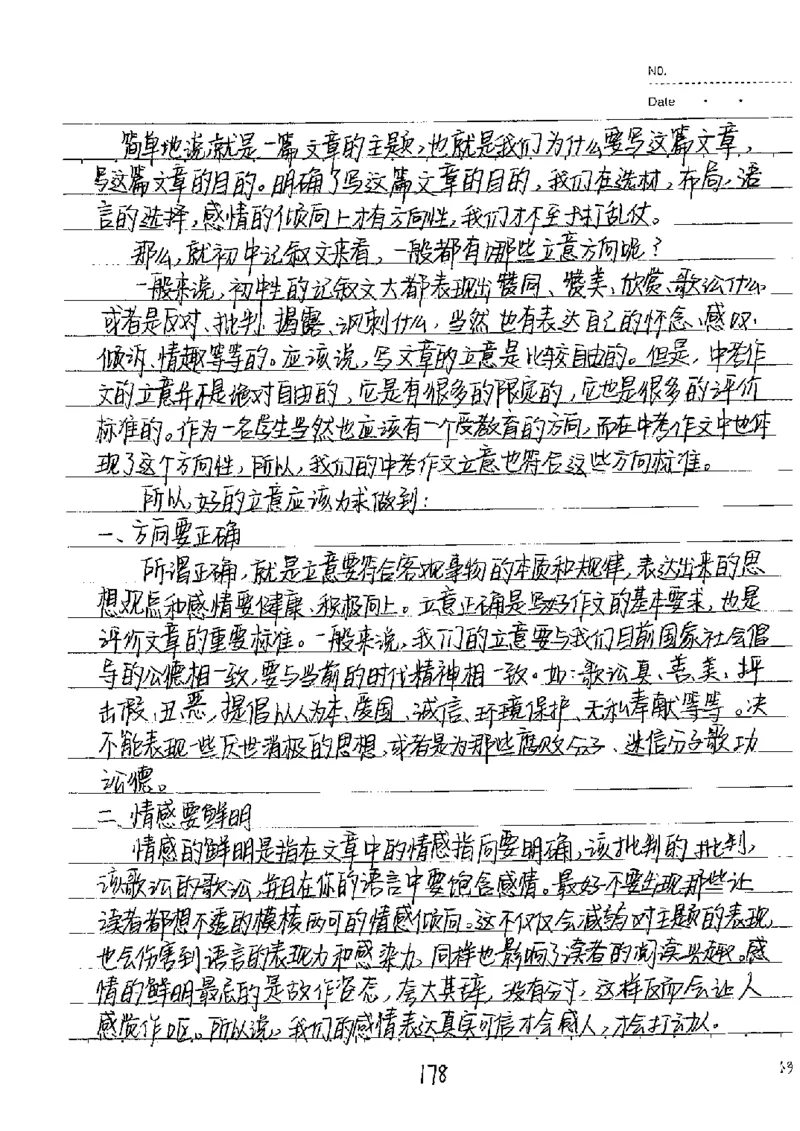 NO.
Date
简单地说,就是一篇文章的主题,也就是我们为什么要写这篇文章,
写这篇文章的目的。明确了写这篇文章的目的,我们在选材,布局,语
言的选择,感情的倾向上才有方向性,我们才不至于打乱仗。
那么,就初中记叙文来看,一般都有哪些立意方向呢?
一般来说,初中生的记叙文大都表现出赞同、赞美、欣赏、歌讼什么
或者是反对、批判、揭露、讽刺什么,当然也有表达自己的怀念、感叹、
倾诉、情趣等等的。应该说,写文章的立意是比较自由的。但是,中考作
文的立意并不是绝对自由的,它是有很多的限定的,它也是很多的评价
标准的。作为一名学生当然也应该有一个受教育的方向,而在中考作文中也体
现了这个方向性,所以,我们的中考作文立意也符合这些方向标准。
所以,好的立意应该力求做到:
一、方向要正确
所谓正确,就是立意要符合客观事物的本质和规律,表达出来的思
想观点和感情要健康、积极向上。立意正确是写好作文的基本要求,也是
评价文章的重要标准。一般来说,我们的立意要与我们目前国家社会倡
导的公德相一致,要与当前的时代精神相一致。如:歌讼真、善、美,抨
击假、丑、恶,提倡以人为本、爱国、诚信、环境保护、无私奉献等等。决
不能表现一些厌世消极的思想,或者是为那些腐败分子、迷信分子歌功
讼德。
二、情感要鲜明
情感的鲜明是指在文章中的情感指向要明确,该批判的批判,
该歌讼的歌讼,并且在你的语言中要饱含感情。最好不要出现那些让
读者都想不透的模棱两可的情感倾向。这不仅仅会减弱对主题的表现,
也会伤害到语言的表现力和感染力,同样也影响了读者的阅读兴趣。感
情的鲜明最忌的是故作姿态,夸大其辞,没有分寸,这样反而会让人
感觉作呕。所以说,我们的感情表达真实可信才会感人,才会打动人。
178